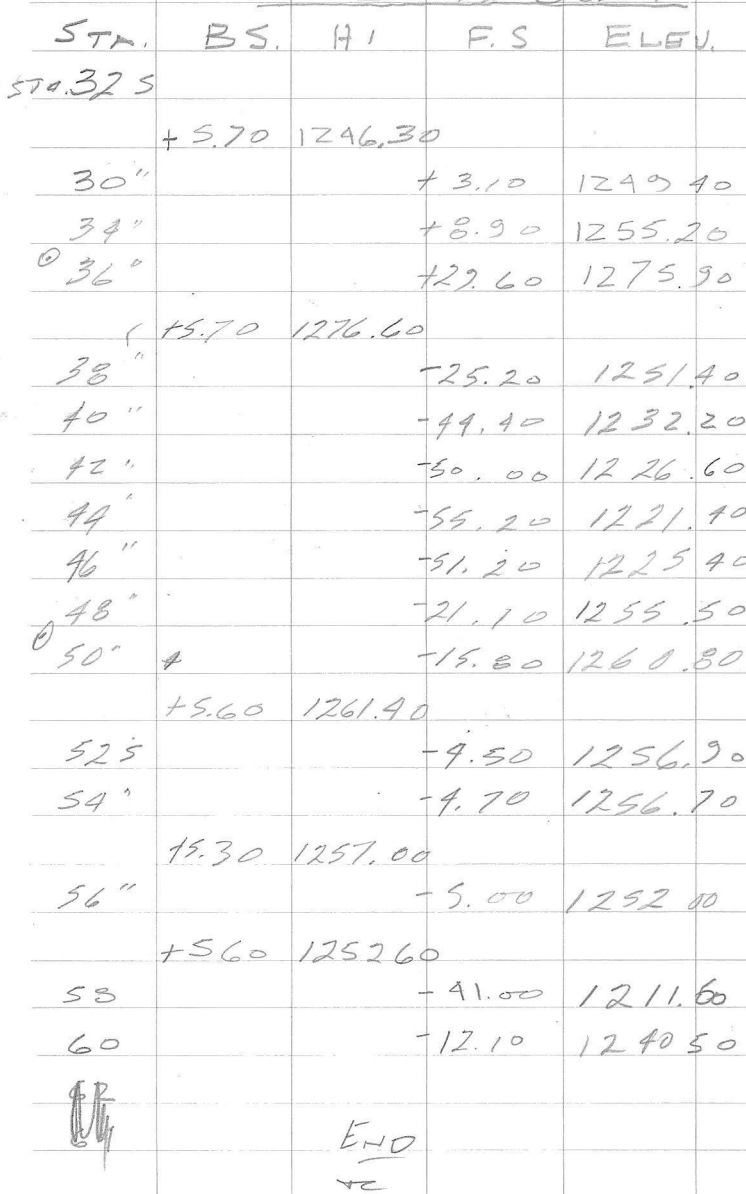 STA. BS. HI F.S ELEV.
STA.32 S
+5.70 1246.30
30" +3.10 1249 40
34" +8.90 1255.20
36" +29.60 1275.90
+5.70 1276.60
38" -25.20 1251.40
40" -44.40 1232.20
42" -50.00 1226.60
44" -55.20 1221.40
46" -51.20 1225 40
48" -21.10 1255.50
50" -15.80 1260.80
+5.60 1261.40
52 S -4.50 1256.90
54" -4.70 1256.70
+5.30 1257.00
56" -5.00 1252 00
+5 60 1252 60
58 -41.00 1211.60
60 -12.10 1240 50
END